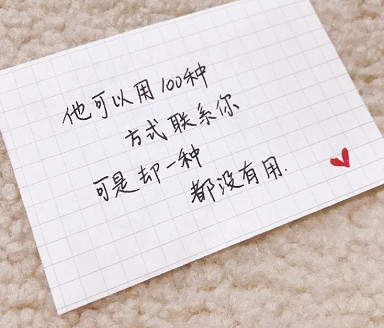 他可以用100种
方式联系你
可是却一种
都没有用.